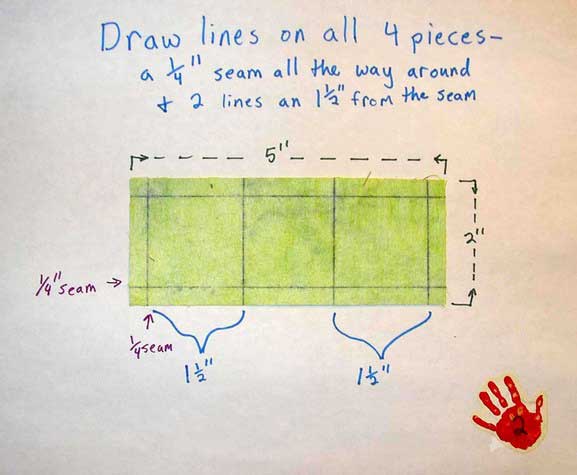 Draw lines on all 4 pieces-
a 1/4" seam all the way around
+ 2 lines an 1 1/2" from the seam
5"
2"
1/4" seam
1/4 seam
1 1/2"
1 1/2"
2